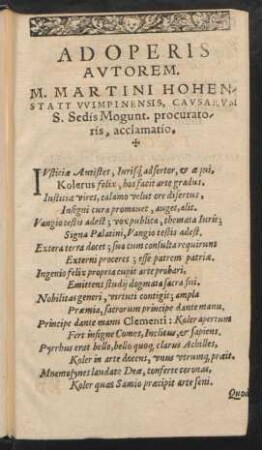 AD OPERIS
AVTOREM.
M. MARTINI HOHEN-
STATT VVIMPINENSIS, CAVSARVM
S. Sedis Mogunt. procurato-
ris, acclamatio.
IVstitiæ Antistes, Iurisq́; adsertor, & æqui,
Kolerus felix, hos facit arte gradus.
Instituit vires, calamo velut ore disertus,
Insigni cura promouet, auget, alit.
Vangio testis adest; vox publica, themata Iuris;
Signa Palatini, Vangio testis adest,
Extera terra docet; sua cum consulta requirunt
Externi proceres; esse patrem patriæ.
Ingenio felix propria cupit arte probari,
Emittens studij dogmata sacra sui.
Nobilitas generi, virtuti contigit; ampla
Præmia, sacrorum principe dante manu.
Principe dante manu Clementi: Koler apertum
Fert insigne Comes, Inclitus, & sapiens.
Pyrrhus erat bello, bello quoq; clarus Achilles,
Koler in arte docens, vnus vtrumq; præit.
Mnemosynes laudate Deæ, conferte coronas,
Koler quas Samio præcipit arte seni.
Quod